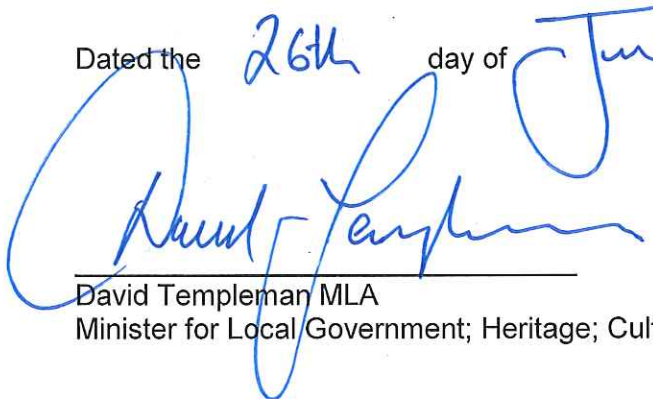 Dated the 26th day of
David Templeman
David Templeman MLA
Minister for Local Government; Heritage; Cul